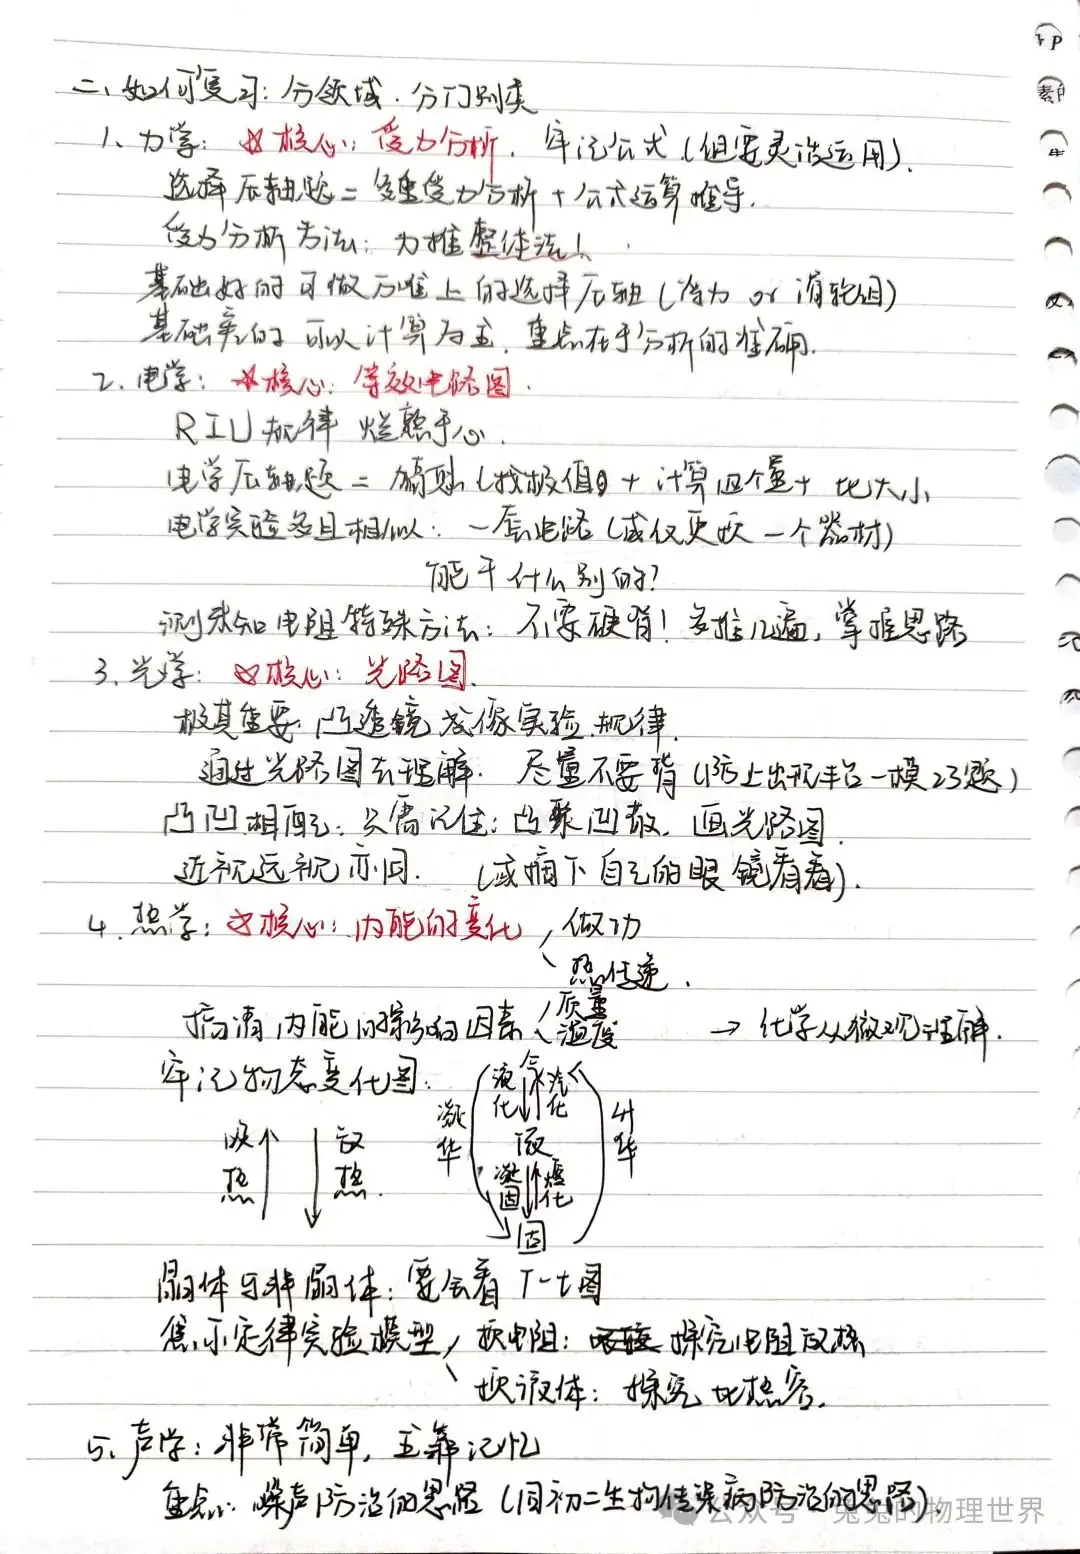 二、如何复习：分领域．分门别类
1、力学：☆核心：受力分析．牢记公式（但要灵活运用）．
选择压轴题＝多重受力分析＋公式运算推导．
受力分析方法：力推整体法！
基础好的可做万唯上的选择压轴（浮力 or 滑轮组）
基础差的可以计算为主．重点在于分析的准确．
2．电学：☆核心：等效电路图．
R I U 规律 烂熟于心．
电学压轴题＝（找极值）＋计算四个量＋比大小
电学实验多且相似．一套电路（或仅更改一个器材）
能干什么别的？
测未知电阻特殊方法：不要硬背！多推几遍，掌握思路
3、光学：☆核心：光路图．
极其重要：凸透镜成像实验．规律．
通过光路图去理解．尽量不要背（防止出现丰台一模23题）
凸凹相配：只需记住：凸聚凹散．画光路图．
近视远视亦同．（或摘下自己的眼镜看看）．
4．热学：☆核心：内能的变化 做功
热传递．
搞清内能的影响因素 质量
温度 → 化学从微观理解．
牢记物态变化图．
吸热 放热．
凝华 液化 气 汽化 升华
液
凝固 熔化
固
晶体与非晶体：要会看 T－t图
焦耳定律实验模型 换电阻：探究电阻放热
换液体：探究比热容．
5、声学：非常简单，主靠记忆
重点：噪声防治的思路（同初二生物传染病防治的思路）．
公众号 · 兔兔的物理世界